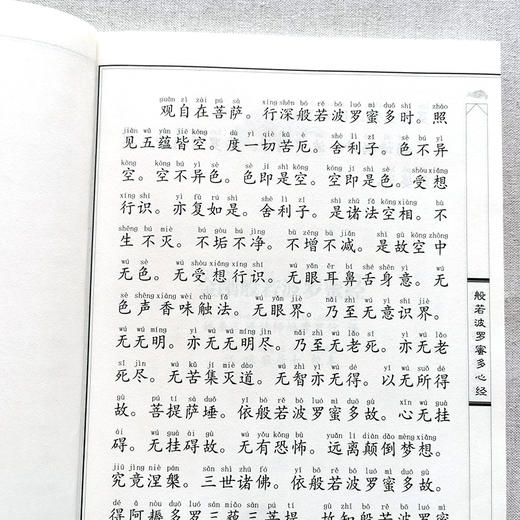 guān zì zài pú sà xíng shēn bō rě bō luó mì duō shí zhào
观自在菩萨。行深般若波罗蜜多时。照
jiàn wǔ yùn jiē kōng dù yí qiè kǔ è shè lì zǐ sè bú yì
见五蕴皆空。度一切苦厄。舍利子。色不异
kōng kōng bú yì sè sè jí shì kōng kōng jí shì sè shòu xiǎng
空。空不异色。色即是空。空即是色。受想
xíng shí yì fù rú shì shè lì zǐ shì zhū fǎ kōng xiàng bù
行识。亦复如是。舍利子。是诸法空相。不
shēng bú miè bú gòu bú jìng bù zēng bù jiǎn shì gù kōng zhōng
生不灭。不垢不净。不增不减。是故空中
wú sè wú shòu xiǎng xíng shí wú yǎn ěr bí shé shēn yì wú
无色。无受想行识。无眼耳鼻舌身意。无
sè shēng xiāng wèi chù fǎ wú yǎn jiè nǎi zhì wú yì shí jiè
色声香味触法。无眼界。乃至无意识界。
wú wú míng yì wú wú míng jìn nǎi zhì wú lǎo sǐ yì wú lǎo
无无明。亦无无明尽。乃至无老死。亦无老
sǐ jìn wú kǔ jí miè dào wú zhì yì wú dé yǐ wú suǒ dé
死尽。无苦集灭道。无智亦无得。以无所得
gù pú tí sà duǒ yī bō rě bō luó mì duō gù xīn wú guà
故。菩提萨埵。依般若波罗蜜多故。心无挂
ài wú guà ài gù wú yǒu kǒng bù yuǎn lí diān dǎo mèng xiǎng
碍。无挂碍故。无有恐怖。远离颠倒梦想。
jiū jìng niè pán sān shì zhū fó yī bō rě bō luó mì duō gù
究竟涅槃。三世诸佛。依般若波罗蜜多故。
dé ā nòu duō luó sān miǎo sān pú tí gù zhī bō rě bō luó mì
得阿耨多罗三藐三菩提。故知般若波罗蜜
般若波罗蜜多心经